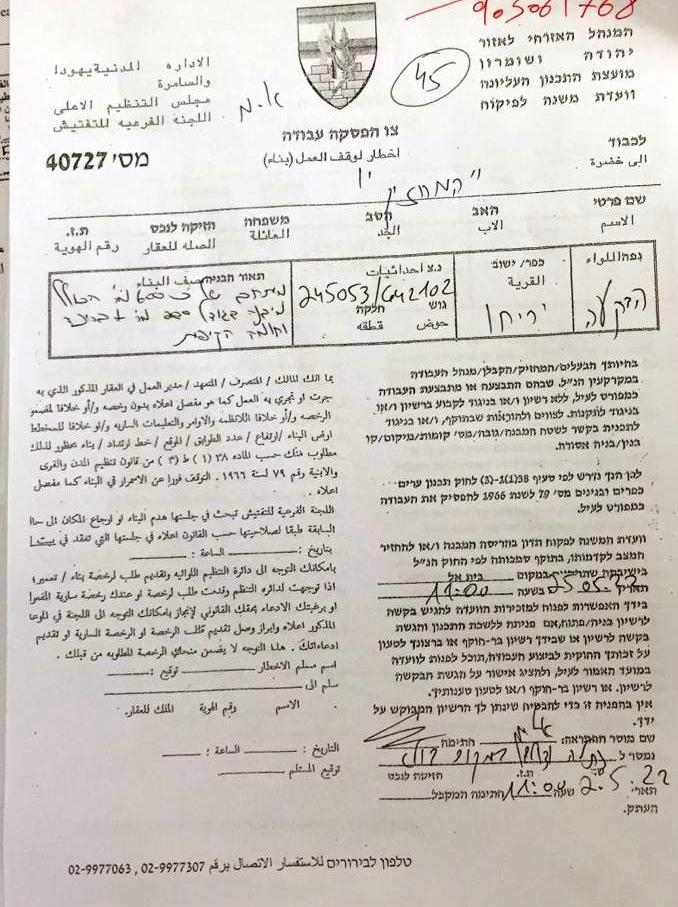 905061768
המנהל האזרחי לאזור
יהודה ושומרון
מועצת התכנון העליונה
וועדת משנה לפיקוח
45
الاداره المدنية يهودا
والسامرة
مجلس التنظيم الاعلى
اللجنه الفرعيه للتفتيش
א.מ
צו הפסקה עבודה
اخطار لوقف العمل (بناء)
מס' 40727
לכבוד
الى حضرة
"המחזיק"
שם פרטי האב הסב משפחה חזיקה לנכס ת.ז.
الاسم الاب الجد العائلة الصله للعقار رقم الهوية
נפה/לואء
הבקעה
כפר/ישוב
القرية
יריחו
נ.צ احداثيات
245053/642102
גוש חלקה
حوض قطعه
תאור הבניה وصف البناء
מתחם של
וחומה הקיפית
בהיותך הבעלים/המחזיק/הקבלן/מנהל העבודה
במקרקעין הנ"ל. שבהם התבצעה או מתבצעת העבודה
כמפורט לעיל, ללא רשיון ו/או בניגוד לקבוע ברשיון ו/או
בניגוד לתקנות. לצווים ולהוראות שבתוקף, ו/או בניגוד
לתכנית בקשר לשטח המבנה/גובה/מס' קומות/מיקום/קו
בנין/בניה אסורה.
לכן הנך נדרש לפי סעיף 38(1)-(3) לחוק תכנון ערים
כפרים ובניינים מס' 79 לשנת 1966 להפסיק את העבודה
כמפורט לעיל.
וועדת המשנה לפקוח תדון בהריסת המבנה ו/או להחזיר
המצב לקדמותו, בתוקף סמכותה לפי החוק הנ"ל
בישיבתה שתתקיים במקום בית אל
תאריך 25.05 11:00
בידך האפשרות לפנות למזכירות הוועדה להגיש בקשה
לרשיון בניה/פתוח, אם פניתה ללשכת התכנון והגשת
בקשה לרשיון או שבידך רשיון בר-חוקף או ברצונך לטעון
על זכותך החוקית לביצוע העבודה, תוכל לפנות לוועדה
במועד האמור לעיל, ולהציג אישור על הגשת הבקשה
לרשיון. או רשיון בר-חוקף ו/או לטעון טענותיך.
אין בהפניה זו כדי להבטיח שינתן לך הרשיון המבוקש על
ידך.
שם מוסר ההתראה: א.מ. חתימה
נמסר ל
שם ת.ז. חזיקה לנכס
תארי 2.5.22 שעה 11:00 חתימה המקבל
העתק.
بما انك المالك / المتصرف / المتعهد / مدير العمل في العقار المذكور الذي به
جرت او تجري به العمل كما هو مفصل اعلاه بدون رخصه و/أو خلافا
الرخصه و/أو خلافا للانظمه والاوامر والتعليمات الساريه و/او خلافا للمخطط
ارض البناء /ارتفاع / عدد الطوابق / الموقع / خط ارتداد / بناء محظور لذلك
مطلوب منك حسب الماده ٣٨ (١) ط (٣) من قانون تنظيم المدن والقرى
والابنية رقم ٧٩ لسنة ١٩٦٦. التوقف فورا عن الاستمرار في البناء كما مفصل
اعلاه .
اللجنة الفرعية للتفتيش تبحث في جلستها هدم البناء او ارجاع المكان الى
السابقة طبقا لصلاحيتها حسب القانون اعلاه في جلستها التي تعقد في
بتاريخ: الساعة :
بإمكانك التوجه الى دائرة التنظيم اللوائيه وتقديم طلب لرخصة بناء / تعمير،
اذا توجهت لدائره التنظم وقدمت طلب لرخصة او عندك رخصة سارية المفعول
او برغبتك الادعاء بحقك القانوني لإنجاز بامكانك التوجه الى اللجنة في الموعد
المذكور اعلاه وابراز وصل تقديم طلب الرخصة او الرخصة السارية او تقديم
ادعاءاتك . هذا التوجه لا يضمن منحائي الرخصة المطلوبه من قبلك .
اسم مسلم الاخطار توقيع :
سلم الى
الاسم رقم الهوية الملك للعقار.
التاريخ : الساعة :
توقيع المستلم
טלפון לבירורים للاستفسار الاتصال برقم 02-9977307 , 02-9977063